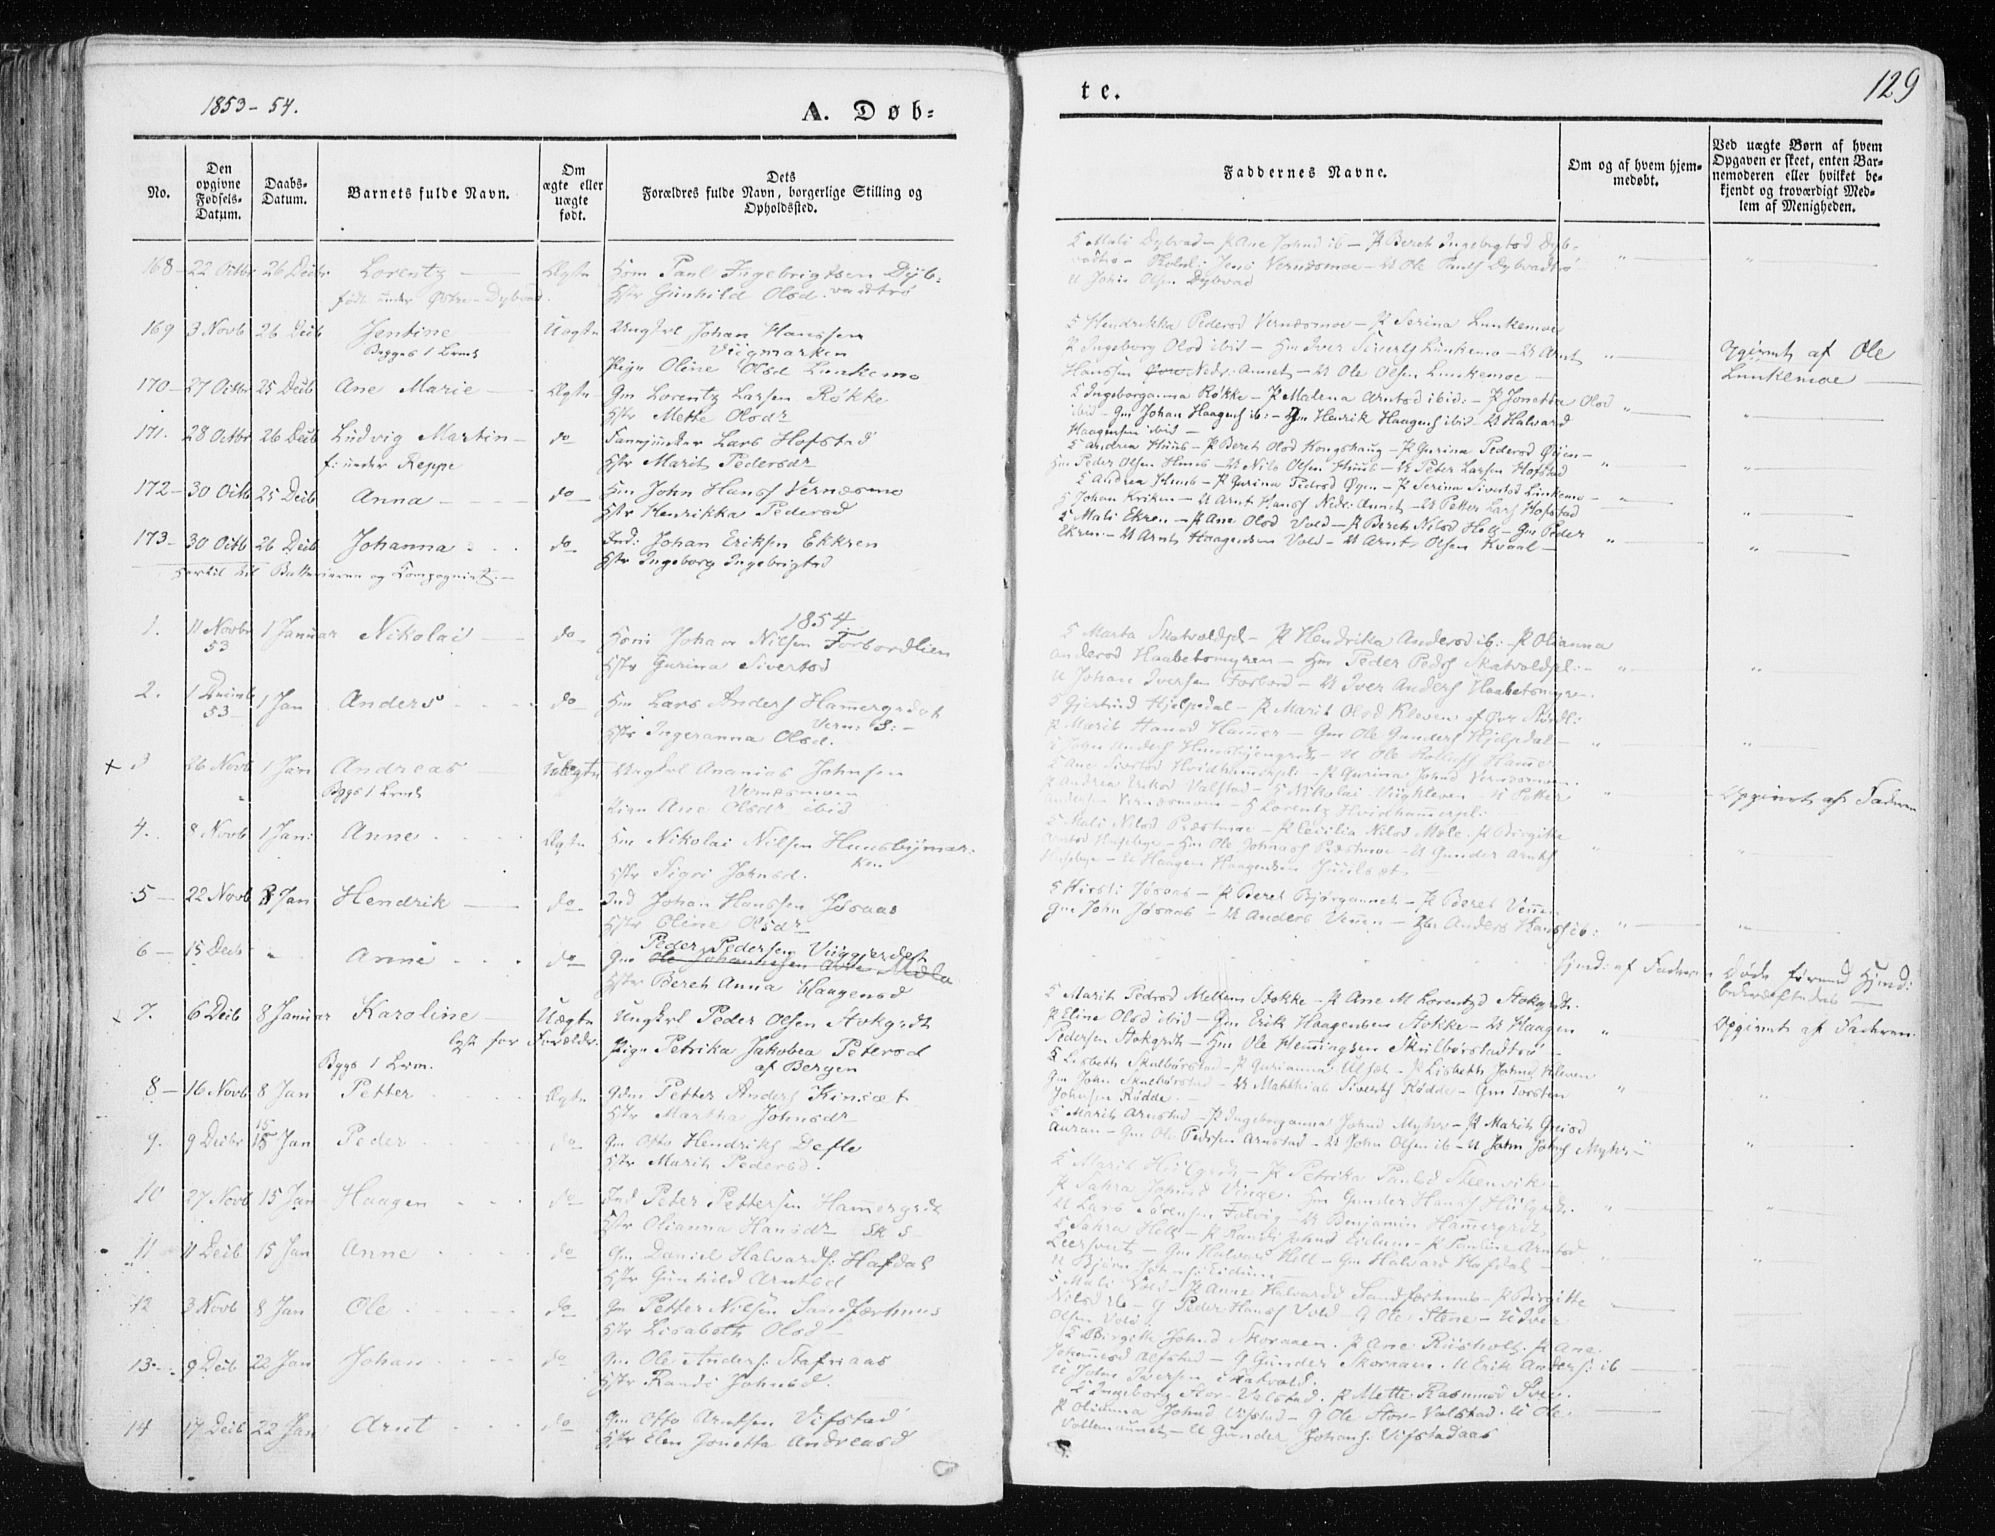 1853-54.
A. Døb-
te.
129
No.
Den opgivne Fødsels-Datum.
Daabs-Datum.
Barnets fulde Navn.
Om ægte eller uægte født.
Dets Forældres fulde Navn, borgerlige Stilling og Opholdssted.
Faddernes Navne.
Om og af hvem hjemmedøbt.
Ved uægte Børn af hvem Opgaven er skeet, enten Barnemoderen eller hvilket bekjendt og troværdigt Medlem af Menigheden.
168 - 22 Octbr 26 Decbr Lorentz Ægte Hsm Paul Ingebrigtsen Dyb-
født under Østre-Dybvad. Hstr Gunhild Olsd. vadtrø
S Mali Dybvad - P Ane Johnsd ib - P Bereth Ingebrigtsd Dyb-
vadtrø - Jens Vernæsmoe - U Ole Pauls Dybvadtrø
U John Olsen Dybvad
169 3 Novb 26 Decb Jentine Uægte Ungkrl Johan Hanssen
Begges 1 Leierm Viigmarken
Pige Oline Olsd Lunkemo
S Hendrikka Pedersd Vernæsmoe - P Serina Lunkemoe
P Ingeborg Olsd ibid - Hm Iver Siverts Lunkemo - U Arnt
Hanssen Nedr. Annet - U Ole Olsen Lunkemoe -
Opgivet af Ole
Lunkemoe
170 - 27 Octbr 25 Decb Ane Marie Ægte Gm Lorentz Larsen Røkke
Hstr Mette Olsdr
S Ingeborganna Røkke - P Malena Arntsd ibid: - P Jonetta Olsd
ibid - Gm Johan Haagens ib: - Gm Henrik Haagens ibid - U Halvard
Haagensen ibid -
171. 28 Octbr 26 Decb Ludvig Martin do Lars Hofstad
f: under Reppe Hstr Marit Pedersdr
S Andrea Huus - P Beret Olsd Kongshaug - P Gurina Pedersd Øyen -
Hm Peder Olsen Huus - U Nils Olsen Huus - U Peter Larsen Hofstad
172 - 30 Octb 25 Decb Anna do Hm John Hanss Vernæsmo
Hstr Henrikka Pedersd
S Andrea Huus - P Gurina Pedersd Øyen - P Serina Sivertsd Lunkemo -
S Johan Kriken - U Arnt Hanss Nedr. Annet - U Petter Lars Hofstad
173 - 30 Octb 26 Decb Johanna do Ind: Johan Eriksen Ekkren
Hstr Ingeborg Ingebrigtsd
S Mali Ekren - P Ane Olsd Vold - P Bereth Nilsd Hell - Gm Peder
Ekren - U Arnt Haagensen Vold - U Arnt Olsen Kvaal -
1854
1. 11 Novbr 53 1 Januar Nikolai do Hsm Johan Nilsen Forbordlien
Hstr Gurina Sivertsd
S Marta Skatvoldpl - P Hendrika Andersd ib: - P Olianna
Andersd Haabetsmyren - Hm Peder Peds Skatvoldpl: -
U Johan Iversen Forbord - U Iver Anders Haabetsmyren.
2. 1 Decemb 53 1 Jan Anders do Hm Lars Anders Hammergrdet
Vern: S: -
Hstr Ingeranna Olsd.
S Gjertrud Hjelpsdal - P Marit Olsd Kleven af Øvr Størdl:
P Marit Hansd Hammer - Gm Ole Gunders Hjelpdal -
U Ole Hammer
+ 3 26 Novb 1 Jan Andreas Uægte Ungkrl Ananias Johnsen
Bggs 1 Leierm Vernæsmoen
Pige Ane Olsdr ibid
S Ane Sivertsd Hvidhammerpl: - P Gurina Johnsd Vernæsmoen.
P Andrea Valstad - S Nikolai Viigkleven - U Petter
Andersen Vernæsmoen - S Lorentz Hvidhammerpl:
Opgivet af Faderen
4. 8 Novb 1 Jan: Anne Ægte Hm Nikolai Nilsen Huusbymar-
ken
Hstr Sigri Johnsd.
S Mali Nilsd Præstmoe - P Cecilia Nilsd Mæle. P Birgitte
Arntsd Husebye - Hm Ole Johnss Præstmoe - U Gunder Arnts
Husebye - U Haagen Haagensen
5 - 22 Novb 8 Jan Hendrik do Ind Johan Hanssen Jøraas
Hstr Oline Olsdr
S Kirsti Jøsaas - P Beret Bjørgannet - P Beret Vennen
Gm John Jøsaas - U Anders Vennen - U Anders Hanss ib:
6 - 15 Decb " Anne do Gm Peder Pedersen Viiggjerdet
Hstr Bereth Anna Haagensd
Hjmd: af Faderen
Døde førend Hjmd:
bekræftedes
7. 6 Decb 8 Januar Karoline Uægte Ungkrl Peder Olsen Stokgrdt
lyst for Forældr.
Bggs 1 Lerm. Pige Petrika Jakobea Petersd
af Bergen
S Marit Pedrsd Mellem Stokke - P Ane M Lorentzd Stokgrdt.
P Eline Olsd ibid - Gm Erik Haagensen Stokke - U Haagen
Pedersen Stokgrdt - Hm Ole Hemmingsen Skulbørstadtrø
Opgivet af Faderen.
8 - 16 Novb 8 Jan Petter Ægte Gdm Petter Anders Kinsæt
Hstr Martha Johnsdr
S Lisbeth Skulbørstad - P Gurianna Ulsæt - P Lisbeth Johnsd Kleven
Gm John Skulbørstad - U Matthias Siverts Rødde - Gm Torsten
Johnsen Rødde.
9. 9 Decbr 15 Jan Peder do Gm Otto Hendriks Defle
Hstr Marit Pedersd.
S Marit Arnstad - P Ingeborganna Johnsd Myhre - P Marit Greisd
Auran - Gm Ole Pedssen Arnstad - U John Olsen ib - U John Johns Myhr -
10 27 Novb 15 Jan Haagen do Ind Peter Pettersen Hammergrdt
Hstr Olianna Hansdr Sk S
S Marit Hiilgrdt - P Petrika Paulsd Steenvik -
P Sahra Johnsd Vinge. Hm Gunder Hanss Hiilgrdt.
U Lars Sørensen Folvig - U Benjamin Hammergrdt
11 11 Decb 15 Jan Anne do Gm Daniel Halvards: Hafdal
Hstr Gunhild Arntsd
S Sahra Hell - P Randi Johnsd Eidum - P Pauline Arntsd
- Gm Halvard Hell - Gm Halvard Hafdal -
U Bjørn Johns: Eidum
12 3 Novb 8 Jan Ole do Gm Petter Nilsen Sandfærhuus
Hstr Lisabeth Olsd
S Mali Vold - P Anne Halvardsd Sandfærhuus - P Birgitte
Nilsd ib - G Peder Hanss Vold - G Ole Stene - U Iver
Olsen Vold.
13 9 Decb 22 Jan Johan do Gm Ole Anders: Stafnaas
Hstr Randi Johnsd.
S Birgitte Johnsd Skoraaen. P Ane Ruusholt. P Ane
Johannesd Alfstad - G Gunder Skoraaen. U Erik Anders: ib
U John Iversen Skatvold.
14 17 Decb 22 Jan Arnt do Gm Otto Arntsen Vifstad
Hstr Elen Jonetta Andreasd
S Ingeborg Stor-Valstad. P Mette Rasmusd
P Olianna Johnsd Vifstad - G Ole Stor-Valstad. U Ole
- U Gunder Johans: Vifstadaas